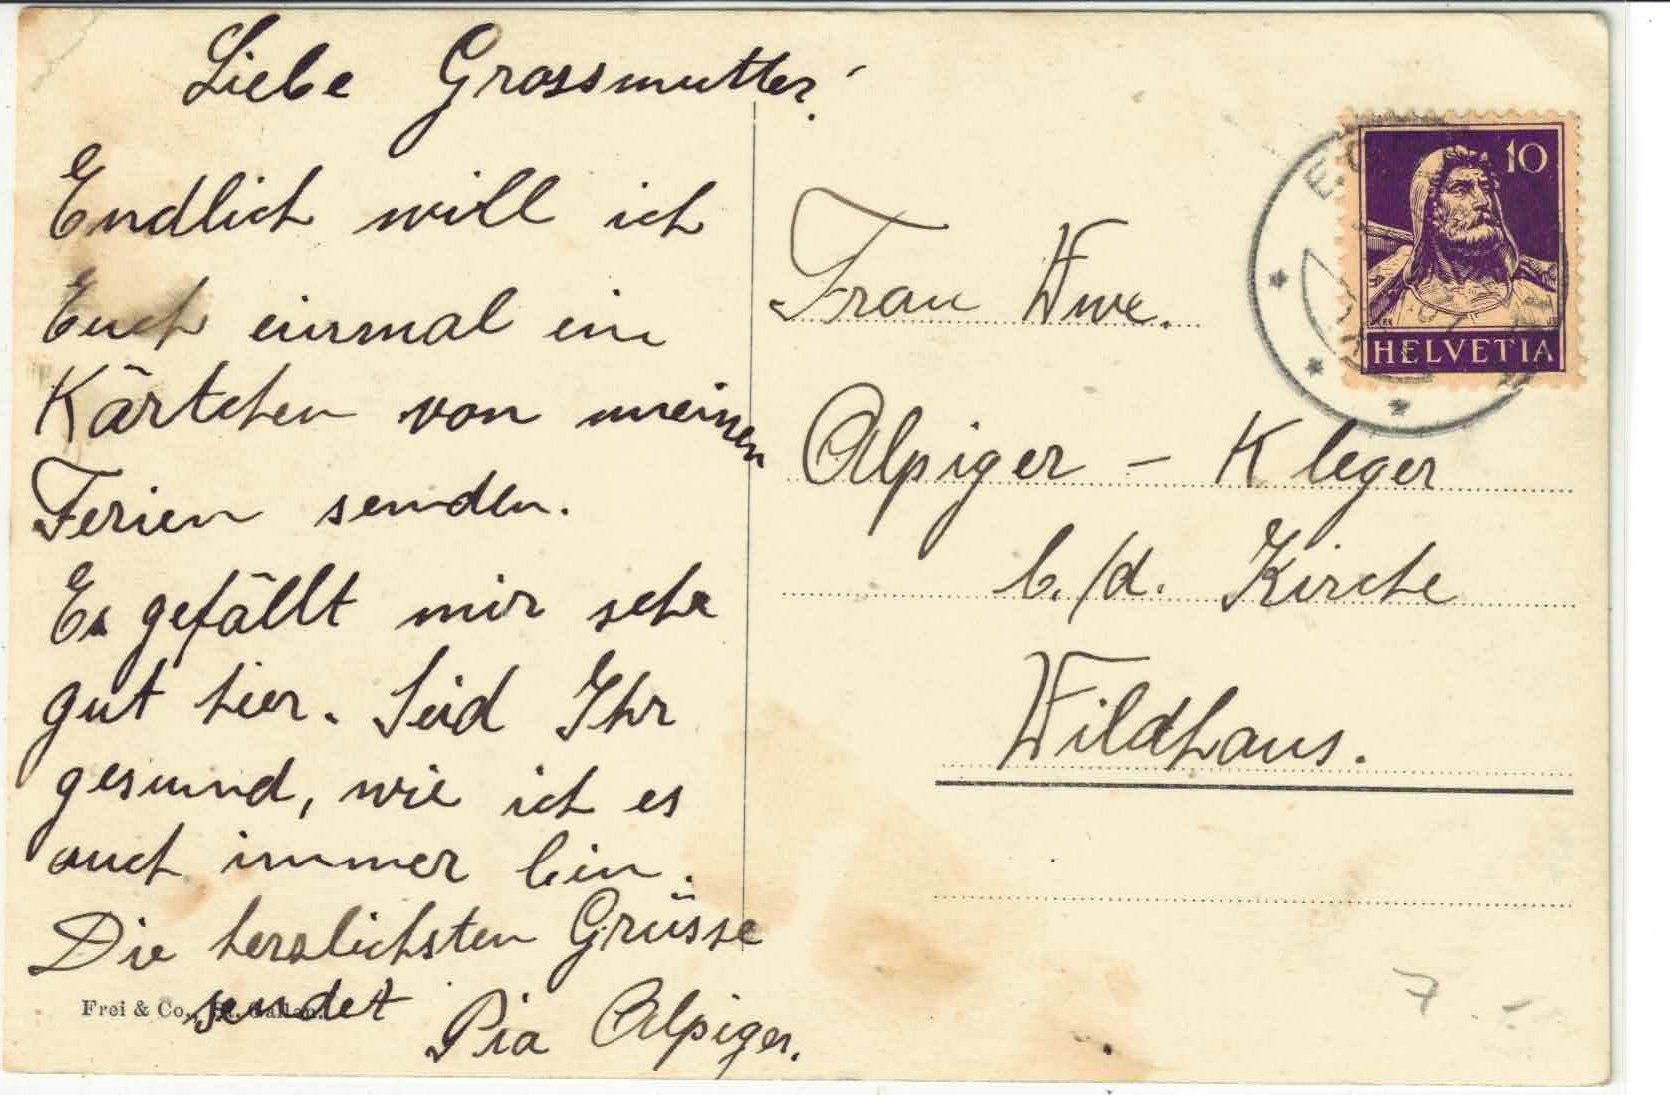 Liebe Grossmutter!
Endlich will ich
Euch einmal ein
Kärtchen von meinen
Ferien senden.
Es gefällt mir sehr
gut hier. Seid Ihr
gesund, wie ich es
auch immer bin.
Die herzlichsten Grüsse
sendet Pia Alpiger.
Frei & Co., St. Gallen.
10
HELVETIA
Frau Wwe.
Alpiger - Kleger
b./d. Kirche
Wildhaus.
7